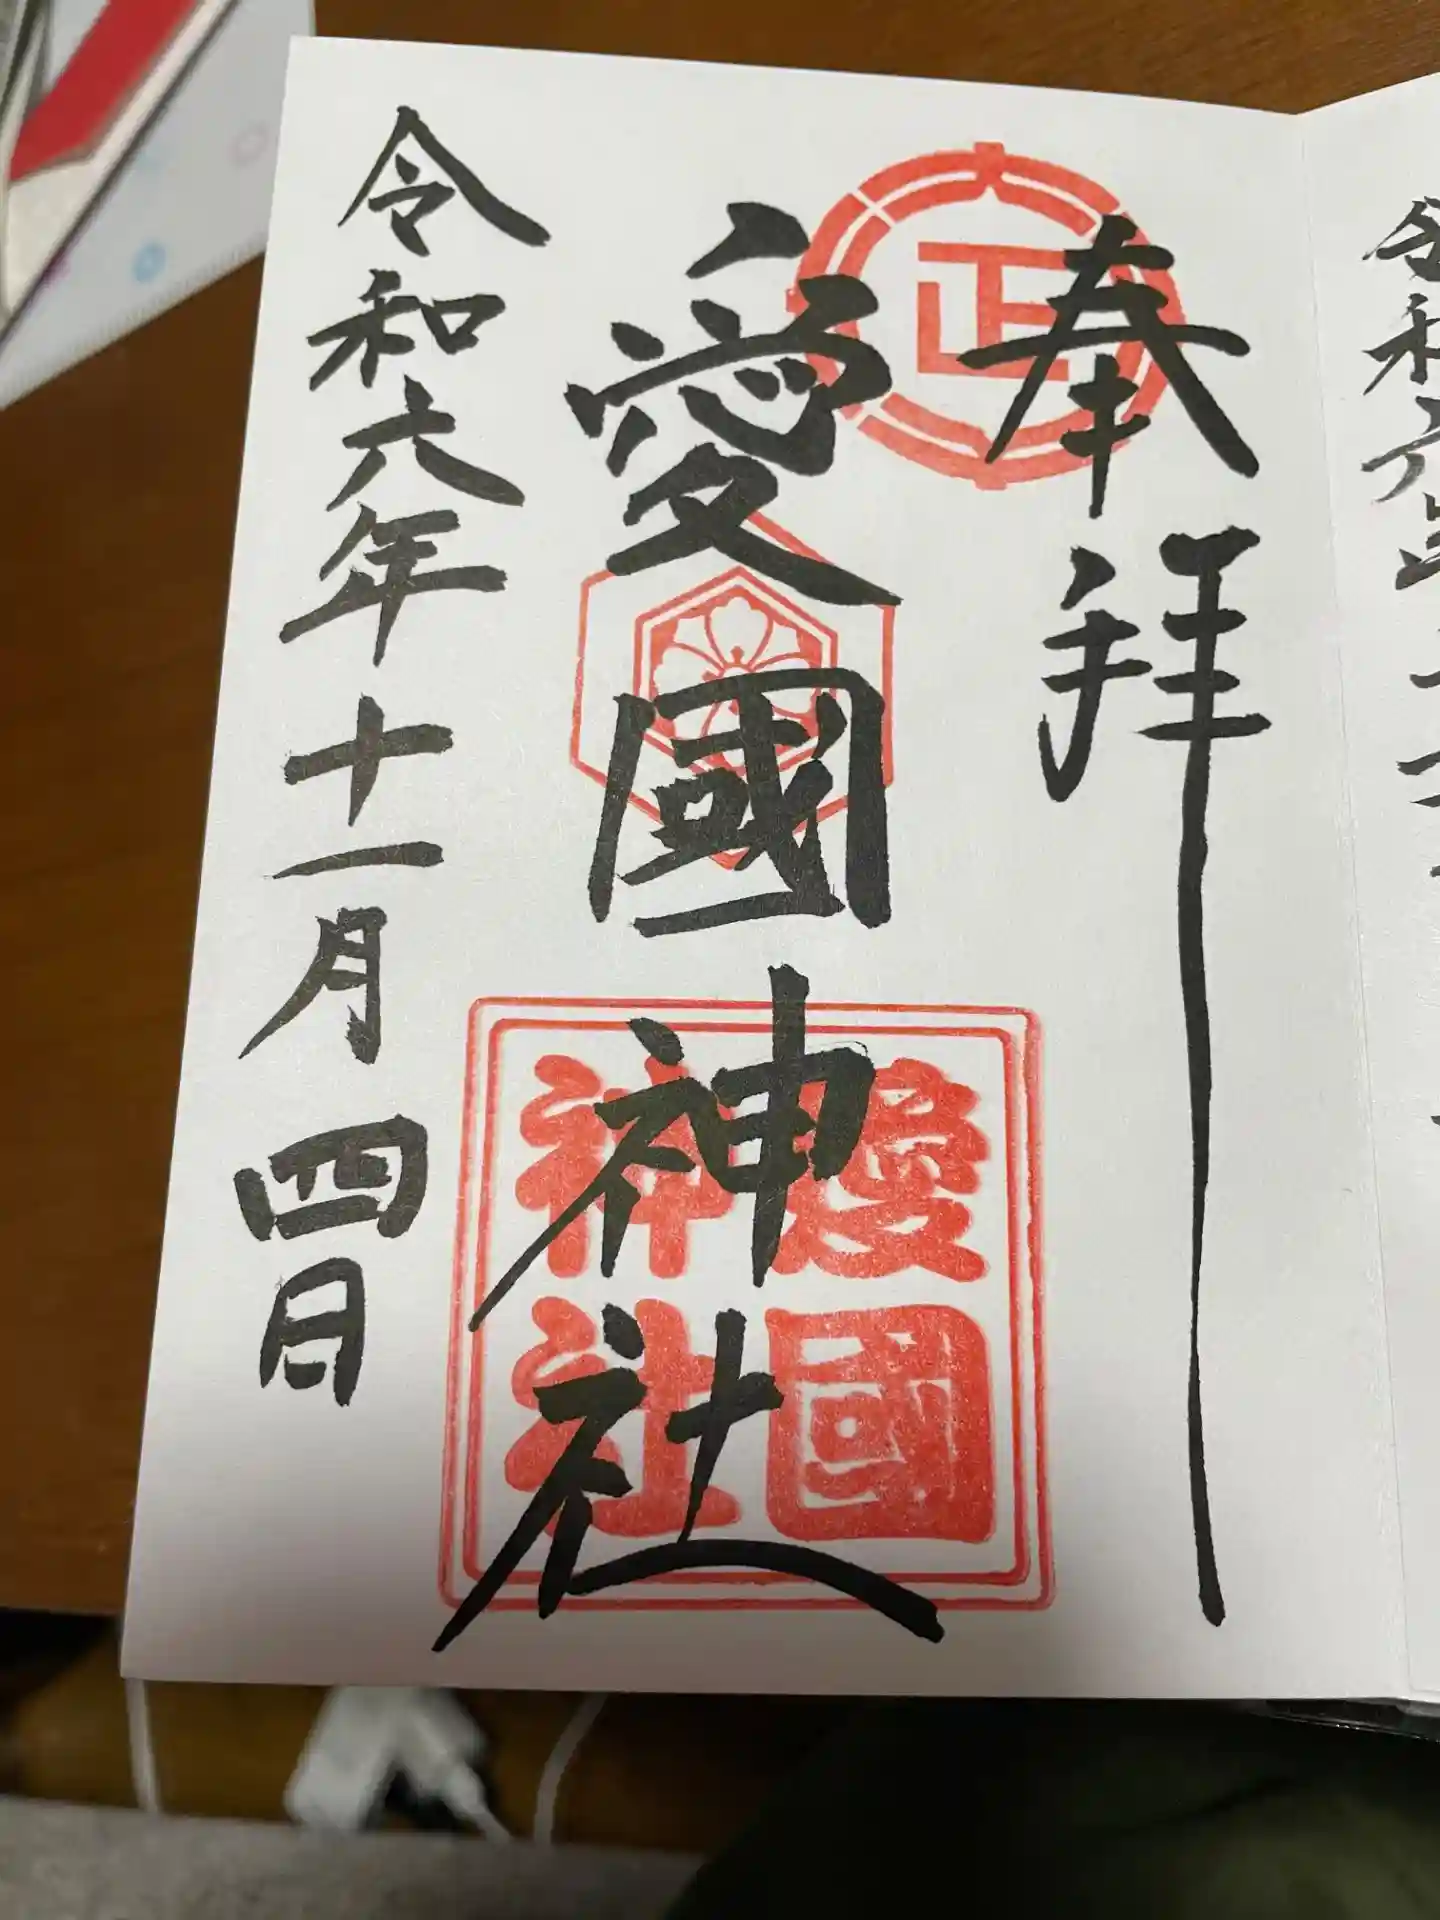 奉拝
愛國神社
令和六年十一月四日
正
愛國
神社
令和六年